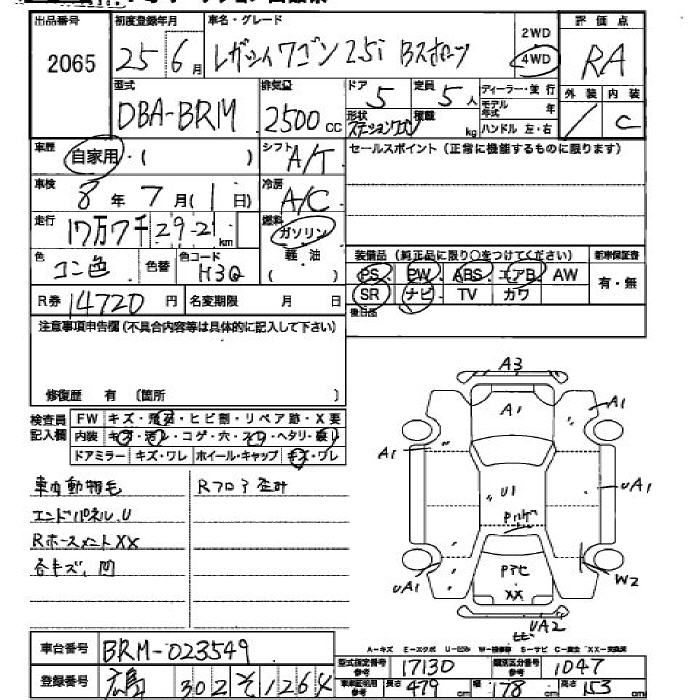 出品番号 初度登録年月 車名・グレード 2WD 評価点
2065 25 6月 レガシィワゴン 2.5i Bスポーツ 4WD RA
型式 排気量 ドア 定員 ディーラー・並行 外装 内装
DBA-BRM 2500cc 5 5人 モデル年式 年
形状 ステーションワゴン 積載 kg ハンドル 左・右 C
車歴 自家用・( ) シフト A/T セールスポイント(正常に機能するものに限ります)
車検 8年7月(1日) 冷房 A/C
走行 17万7千 29-21 km 燃料 ガソリン
軽油
( )
色 コン色 色替 色コード H3Q 装備品(純正品に限り○をつけてください) 新車保証書
PS PW ABS エアB AW 有・無
SR ナビ TV カワ
R券 14720円 名変期限 月 日 後日品
注意事項申告欄(不具合内容等は具体的に記入して下さい)
修復歴 有 〔箇所 〕
検査員記入欄 FW キズ・飛石・ヒビ割・リペア跡・X要
内装 キズ・汚レ・コゲ・穴・スレ・ヘタリ・
ドアミラー キズ・ワレ ホイール・キャップ キズ・ワレ
車内動物毛 Rフロア歪み
エンドパネル.U
Rホースメント XX
各キズ、凹
A3
A1
A1
A1
U1
UA1
UA1
W2
XX
UA2
A-キズ E-エクボ U-凹み W-補修跡 S-サビ C-腐食 XX-交換済
車台番号 BRM-023549
登録番号 広島 302 そ 1264
型式指定番号 参考 17130 類別区分番号 参考 1047
車車証明用 参考 長さ 479cm 幅 178cm 高さ 153cm